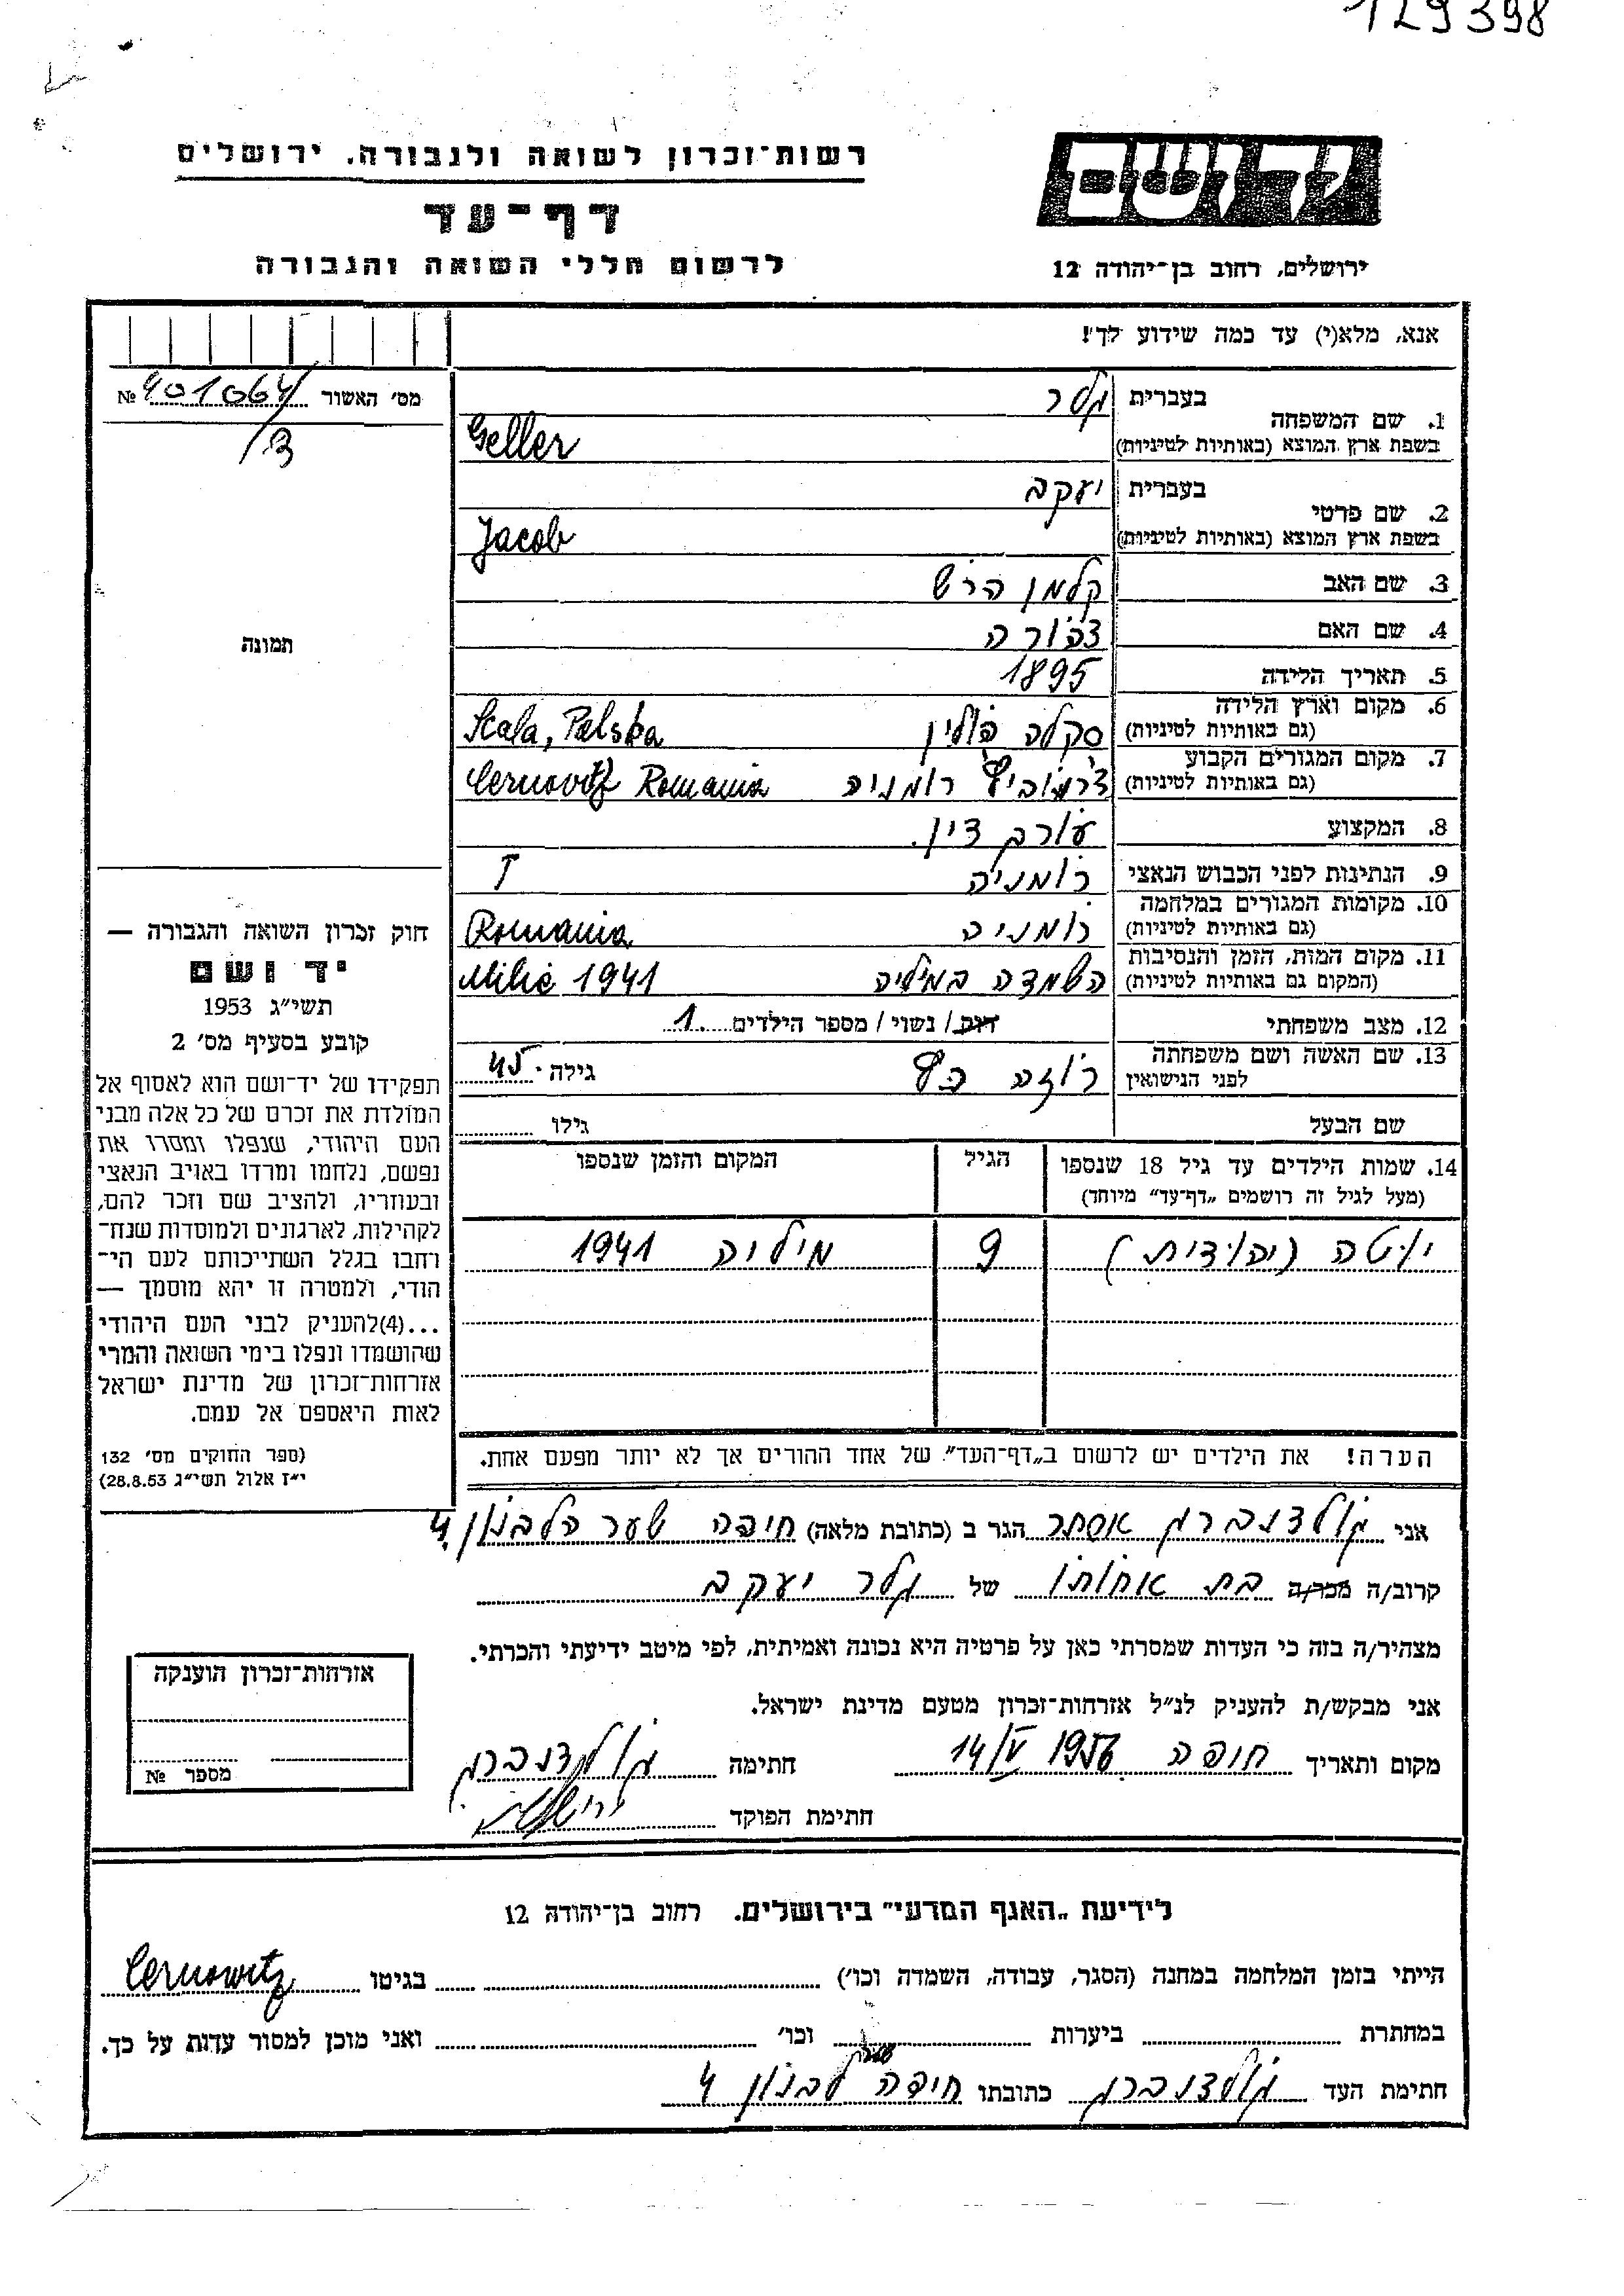 129398
רשות־זכרון לשואה ולגבורה. ירושלים
דף־עד
לרשום חללי השואה והגבורה
יד ושם
ירושלים, רחוב בן־יהודה 12
אנא, מלא(י) עד כמה שידוע לך!
מס׳ האשור № 401064/
/3
תמונה
1. שם המשפחה
בעברית גלר
בשפת ארץ המוצא (באותיות לטיניות) Geller
2. שם פרטי
בעברית יעקב
בשפת ארץ המוצא (באותיות לטיניות) Jacob
3. שם האב קלמן הרש
4. שם האם צפורה
5. תאריך הלידה 1895
6. מקום וארץ הלידה
(גם באותיות לטיניות) סקלה פולין Scala, Polska
7. מקום המגורים הקבוע
(גם באותיות לטיניות) צ'רנוביץ רומניה Cernovitz Romania
8. המקצוע עורב דין.
9. הנתינות לפני הכבוש הנאצי רומניה
10. מקומות המגורים במלחמה
(גם באותיות לטיניות) רומניה Romania
11. מקום המות, הזמן והנסיבות
(המקום גם באותיות לטיניות) השמדה במיליה Milie 1941
12. מצב משפחתי רווק/ נשוי/ מספר הילדים 1.
13. שם האשה ושם משפחתה
לפני הנישואין רוזה כץ גילה 45.
שם הבעל גילו
14. שמות הילדים עד גיל 18 שנספו הגיל המקום והזמן שנספו
(מעל לגיל זה רושמים „דף־עד״ מיוחד)
יוטה (יהודית) 9 מיליה 1941
הערה! את הילדים יש לרשום ב„דף־העד״ של אחד ההורים אך לא יותר מפעם אחת.
חוק זכרון השואה והגבורה —
יד ושם
תשי״ג 1953
קובע בסעיף מס׳ 2
תפקידו של יד־ושם הוא לאסוף אל
המולדת את זכרם של כל אלה מבני
העם היהודי, שנפלו ומסרו את
נפשם, נלחמו ומרדו באויב הנאצי
ובעוזריו, ולהציב שם וזכר להם,
לקהילות, לארגונים ולמוסדות שנח־
רחבו בגלל השתייכותם לעם הי־
הודי, ולמטרה זו יהא מוסמך —
...(4)להעניק לבני העם היהודי
שהושמדו ונפלו בימי השואה והמרי
אזרחות־זכרון של מדינת ישראל
לאות היאספם אל עמם.
(ספר החוקים מס׳ 132
י״ז אלול תשי״ג 28.8.53)
אני גולדנברג אסתר הגר ב (כתובת מלאה) חיפה שער הלבנון 4
קרוב/ה מכר/ה בת אחותו של גלר יעקב
מצהיר/ה בזה כי העדות שמסרתי כאן על פרטיה היא נכונה ואמיתית, לפי מיטב ידיעתי והכרתי.
אני מבקש/ת להעניק לנ״ל אזרחות־זכרון מטעם מדינת ישראל.
מקום ותאריך חיפה 14/V 1956 חתימה גולדנברג
חתימת הפוקד
אזרחות־זכרון הוענקה
מספר №
לידיעת „האגף המדעי״ בירושלים. רחוב בן־יהודה 12
הייתי בזמן המלחמה במחנה (הסגר, עבודה, השמדה וכו׳) בגיטו Cernowitz
במחתרת ביערות וכו׳ ואני מוכן למסור עדות על כך.
חתימת העד גולדנברג כתובתו חיפה שער לבנון 4